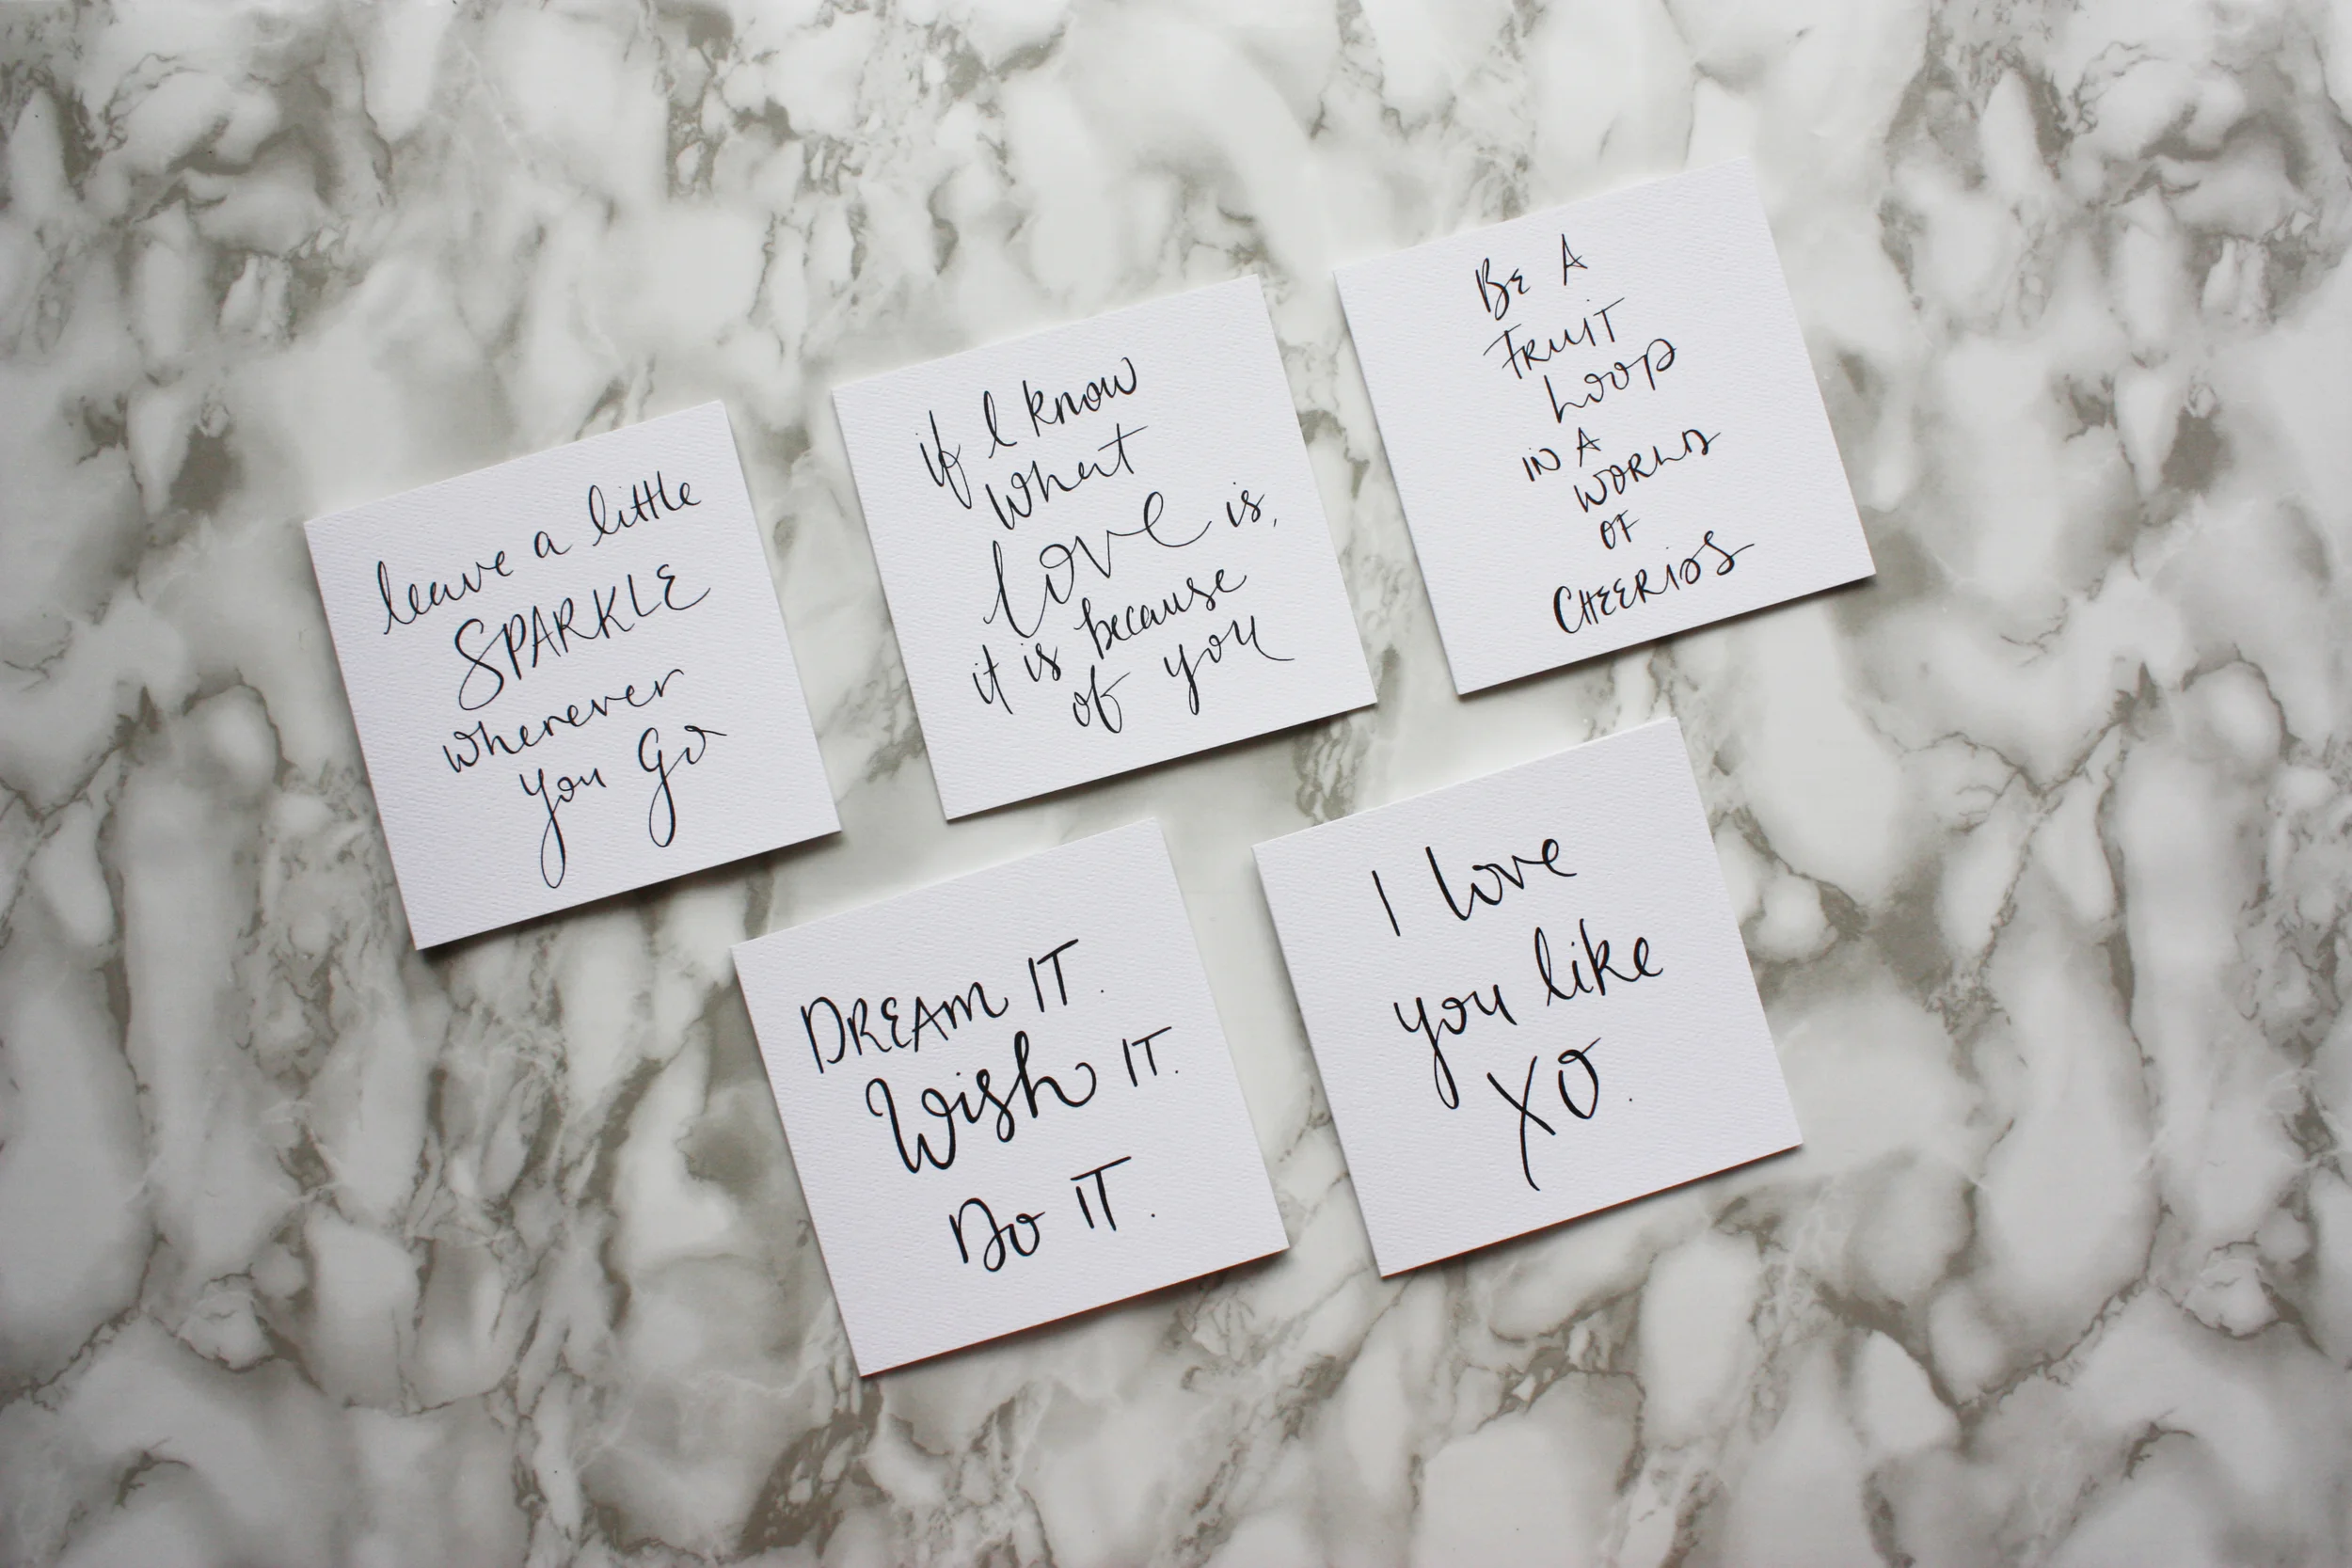 leave a little
SPARKLE
wherever
you Go
if I know
what
love is,
it is because
of you
BE A
FRUIT
LOOP
IN A
WORLD
OF
CHEERIOS
DREAM IT.
Wish IT.
Do IT.
I love
you like
XO.